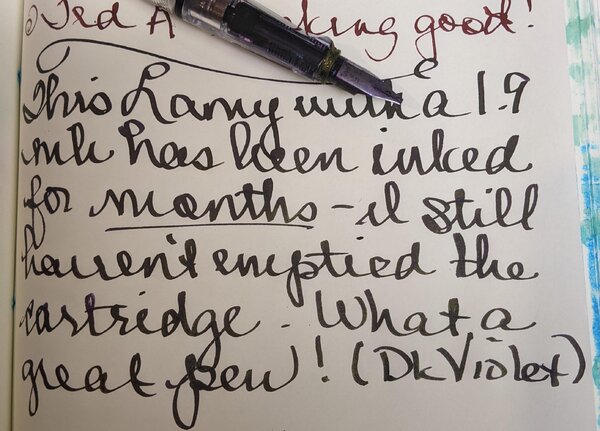 Ted A king good!
This Lamy with a 1.9
nib has been inked
for months - I still
haven't emptied the
cartridge. What a
great pen! (Dk Violet)